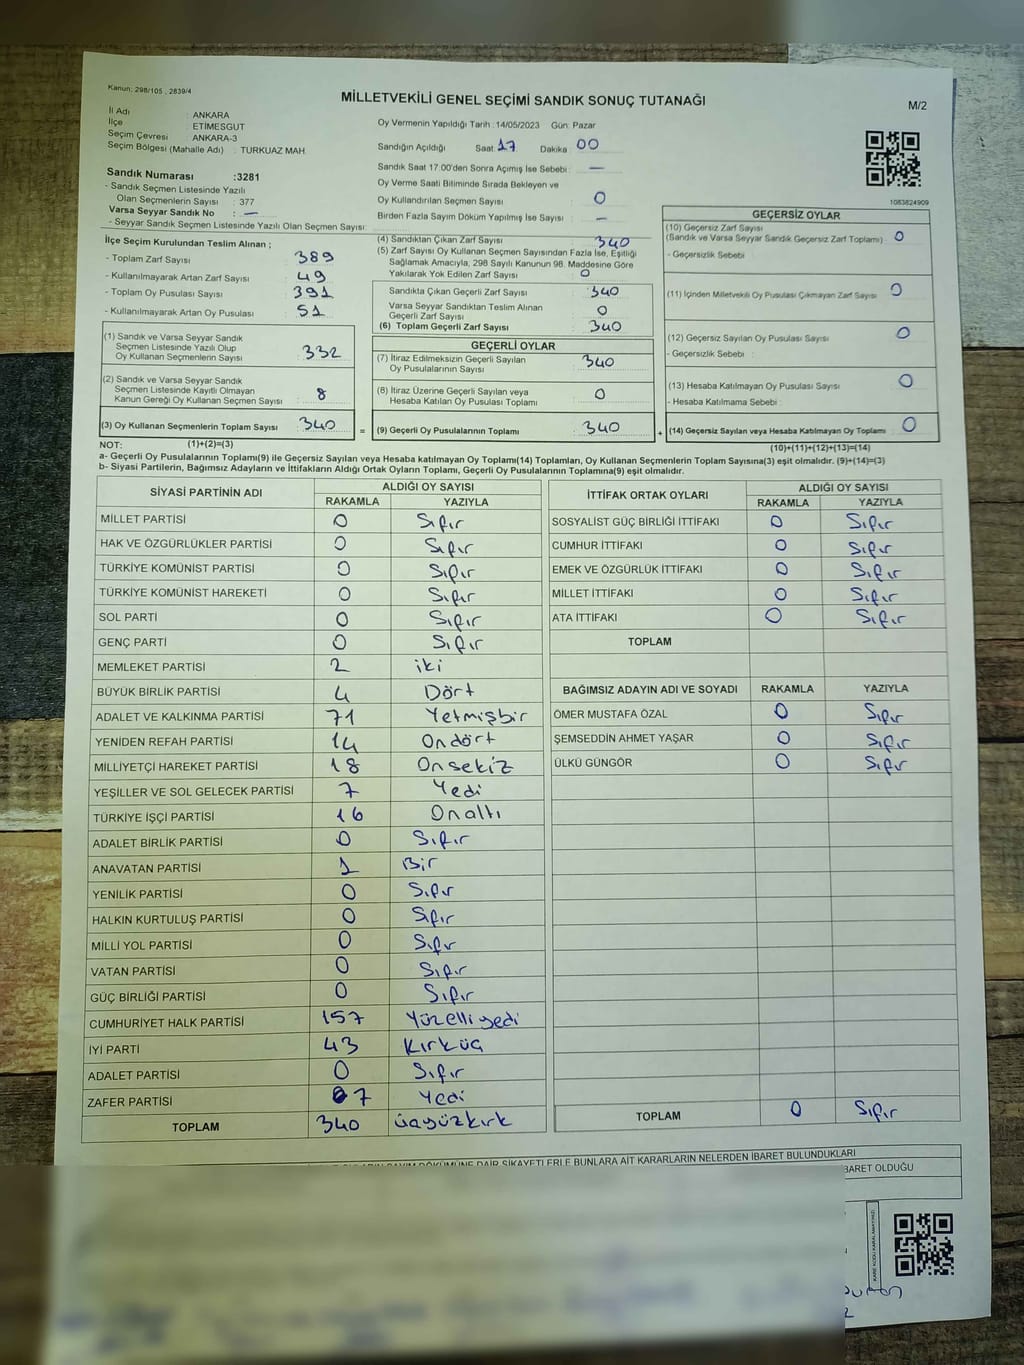 Kanun; 298/105 , 2839/4
MİLLETVEKİLİ GENEL SEÇİMİ SANDIK SONUÇ TUTANAĞI
M/2
İl Adı : ANKARA
İlçe : ETİMESGUT
Seçim Çevresi : ANKARA-3
Seçim Bölgesi (Mahalle Adı) : TURKUAZ MAH.
Oy Vermenin Yapıldığı Tarih :14/05/2023 Gün: Pazar
Sandığın Açıldığı Saat : 17 Dakika : 00
Sandık Saat 17:00'den Sonra Açımış İse Sebebi : —
Oy Verme Saati Bitiminde Sırada Bekleyen ve
Oy Kullandırılan Seçmen Sayısı : 0
Birden Fazla Sayım Döküm Yapılmış İse Sayısı : —
1083824909
Sandık Numarası :3281
- Sandık Seçmen Listesinde Yazılı
Olan Seçmenlerin Sayısı : 377
Varsa Seyyar Sandık No : —
- Seyyar Sandık Seçmen Listesinde Yazılı Olan Seçmen Sayısı:
İlçe Seçim Kurulundan Teslim Alınan ;
- Toplam Zarf Sayısı : 389
- Kullanılmayarak Artan Zarf Sayısı : 49
- Toplam Oy Pusulası Sayısı : 391
- Kullanılmayarak Artan Oy Pusulası : 51
(1) Sandık ve Varsa Seyyar Sandık
Seçmen Listesinde Yazılı Olup
Oy Kullanan Seçmenlerin Sayısı : 332
(2) Sandık ve Varsa Seyyar Sandık
Seçmen Listesinde Kayıtlı Olmayan
Kanun Gereği Oy Kullanan Seçmen Sayısı : 8
(3) Oy Kullanan Seçmenlerin Toplam Sayısı : 340 =
(4) Sandıktan Çıkan Zarf Sayısı : 340
(5) Zarf Sayısı Oy Kullanan Seçmen Sayısından Fazla İse, Eşitliği
Sağlamak Amacıyla, 298 Sayılı Kanunun 98. Maddesine Göre
Yakılarak Yok Edilen Zarf Sayısı : 0
Sandıkta Çıkan Geçerli Zarf Sayısı : 340
Varsa Seyyar Sandıktan Teslim Alınan
Geçerli Zarf Sayısı : 0
(6) Toplam Geçerli Zarf Sayısı : 340
GEÇERLİ OYLAR
(7) İtiraz Edilmeksizin Geçerli Sayılan
Oy Pusulalarının Sayısı : 340
(8) İtiraz Üzerine Geçerli Sayılan veya
Hesaba Katılan Oy Pusulası Toplamı : 0
(9) Geçerli Oy Pusulalarının Toplamı : 340 +
GEÇERSİZ OYLAR
(10) Geçersiz Zarf Sayısı
(Sandık ve Varsa Seyyar Sandık Geçersiz Zarf Toplamı) : 0
- Geçersizlik Sebebi :
(11) İçinden Milletvekili Oy Pusulası Çıkmayan Zarf Sayısı : 0
(12) Geçersiz Sayılan Oy Pusulası Sayısı : 0
- Geçersizlik Sebebi :
(13) Hesaba Katılmayan Oy Pusulası Sayısı : 0
- Hesaba Katılmama Sebebi :
(14) Geçersiz Sayılan veya Hesaba Katılmayan Oy Toplamı : 0
NOT: (1)+(2)=(3) (10)+(11)+(12)+(13)=(14)
a- Geçerli Oy Pusulalarının Toplamı(9) ile Geçersiz Sayılan veya Hesaba katılmayan Oy Toplamı(14) Toplamları, Oy Kullanan Seçmenlerin Toplam Sayısına(3) eşit olmalıdır. (9)+(14)=(3)
b- Siyasi Partilerin, Bağımsız Adayların ve İttifakların Aldığı Ortak Oyların Toplamı, Geçerli Oy Pusulalarının Toplamına(9) eşit olmalıdır.
SİYASİ PARTİNİN ADI ALDIĞI OY SAYISI
RAKAMLA YAZIYLA
MİLLET PARTİSİ 0 Sıfır
HAK VE ÖZGÜRLÜKLER PARTİSİ 0 Sıfır
TÜRKİYE KOMÜNİST PARTİSİ 0 Sıfır
TÜRKİYE KOMÜNİST HAREKETİ 0 Sıfır
SOL PARTİ 0 Sıfır
GENÇ PARTİ 0 Sıfır
MEMLEKET PARTİSİ 2 iki
BÜYÜK BİRLİK PARTİSİ 4 Dört
ADALET VE KALKINMA PARTİSİ 71 Yetmişbir
YENİDEN REFAH PARTİSİ 14 Ondört
MİLLİYETÇİ HAREKET PARTİSİ 18 Onsekiz
YEŞİLLER VE SOL GELECEK PARTİSİ 7 Yedi
TÜRKİYE İŞÇİ PARTİSİ 16 Onaltı
ADALET BİRLİK PARTİSİ 0 Sıfır
ANAVATAN PARTİSİ 1 Bir
YENİLİK PARTİSİ 0 Sıfır
HALKIN KURTULUŞ PARTİSİ 0 Sıfır
MİLLİ YOL PARTİSİ 0 Sıfır
VATAN PARTİSİ 0 Sıfır
GÜÇ BİRLİĞİ PARTİSİ 0 Sıfır
CUMHURİYET HALK PARTİSİ 157 Yüzelliyedi
İYİ PARTİ 43 Kırküç
ADALET PARTİSİ 0 Sıfır
ZAFER PARTİSİ 7 Yedi
TOPLAM 340 üçyüzkırk
İTTİFAK ORTAK OYLARI ALDIĞI OY SAYISI
RAKAMLA YAZIYLA
SOSYALİST GÜÇ BİRLİĞİ İTTİFAKI 0 Sıfır
CUMHUR İTTİFAKI 0 Sıfır
EMEK VE ÖZGÜRLÜK İTTİFAKI 0 Sıfır
MİLLET İTTİFAKI 0 Sıfır
ATA İTTİFAKI 0 Sıfır
TOPLAM
BAĞIMSIZ ADAYIN ADI VE SOYADI RAKAMLA YAZIYLA
ÖMER MUSTAFA ÖZAL 0 Sıfır
ŞEMSEDDİN AHMET YAŞAR 0 Sıfır
ÜLKÜ GÜNGÖR 0 Sıfır
TOPLAM 0 Sıfır
DÖKÜMÜNE DAİR ŞİKAYETLERLE BUNLARA AİT KARARLARIN NELERDEN İBARET BULUNDUKLARI
İBARET OLDUĞU